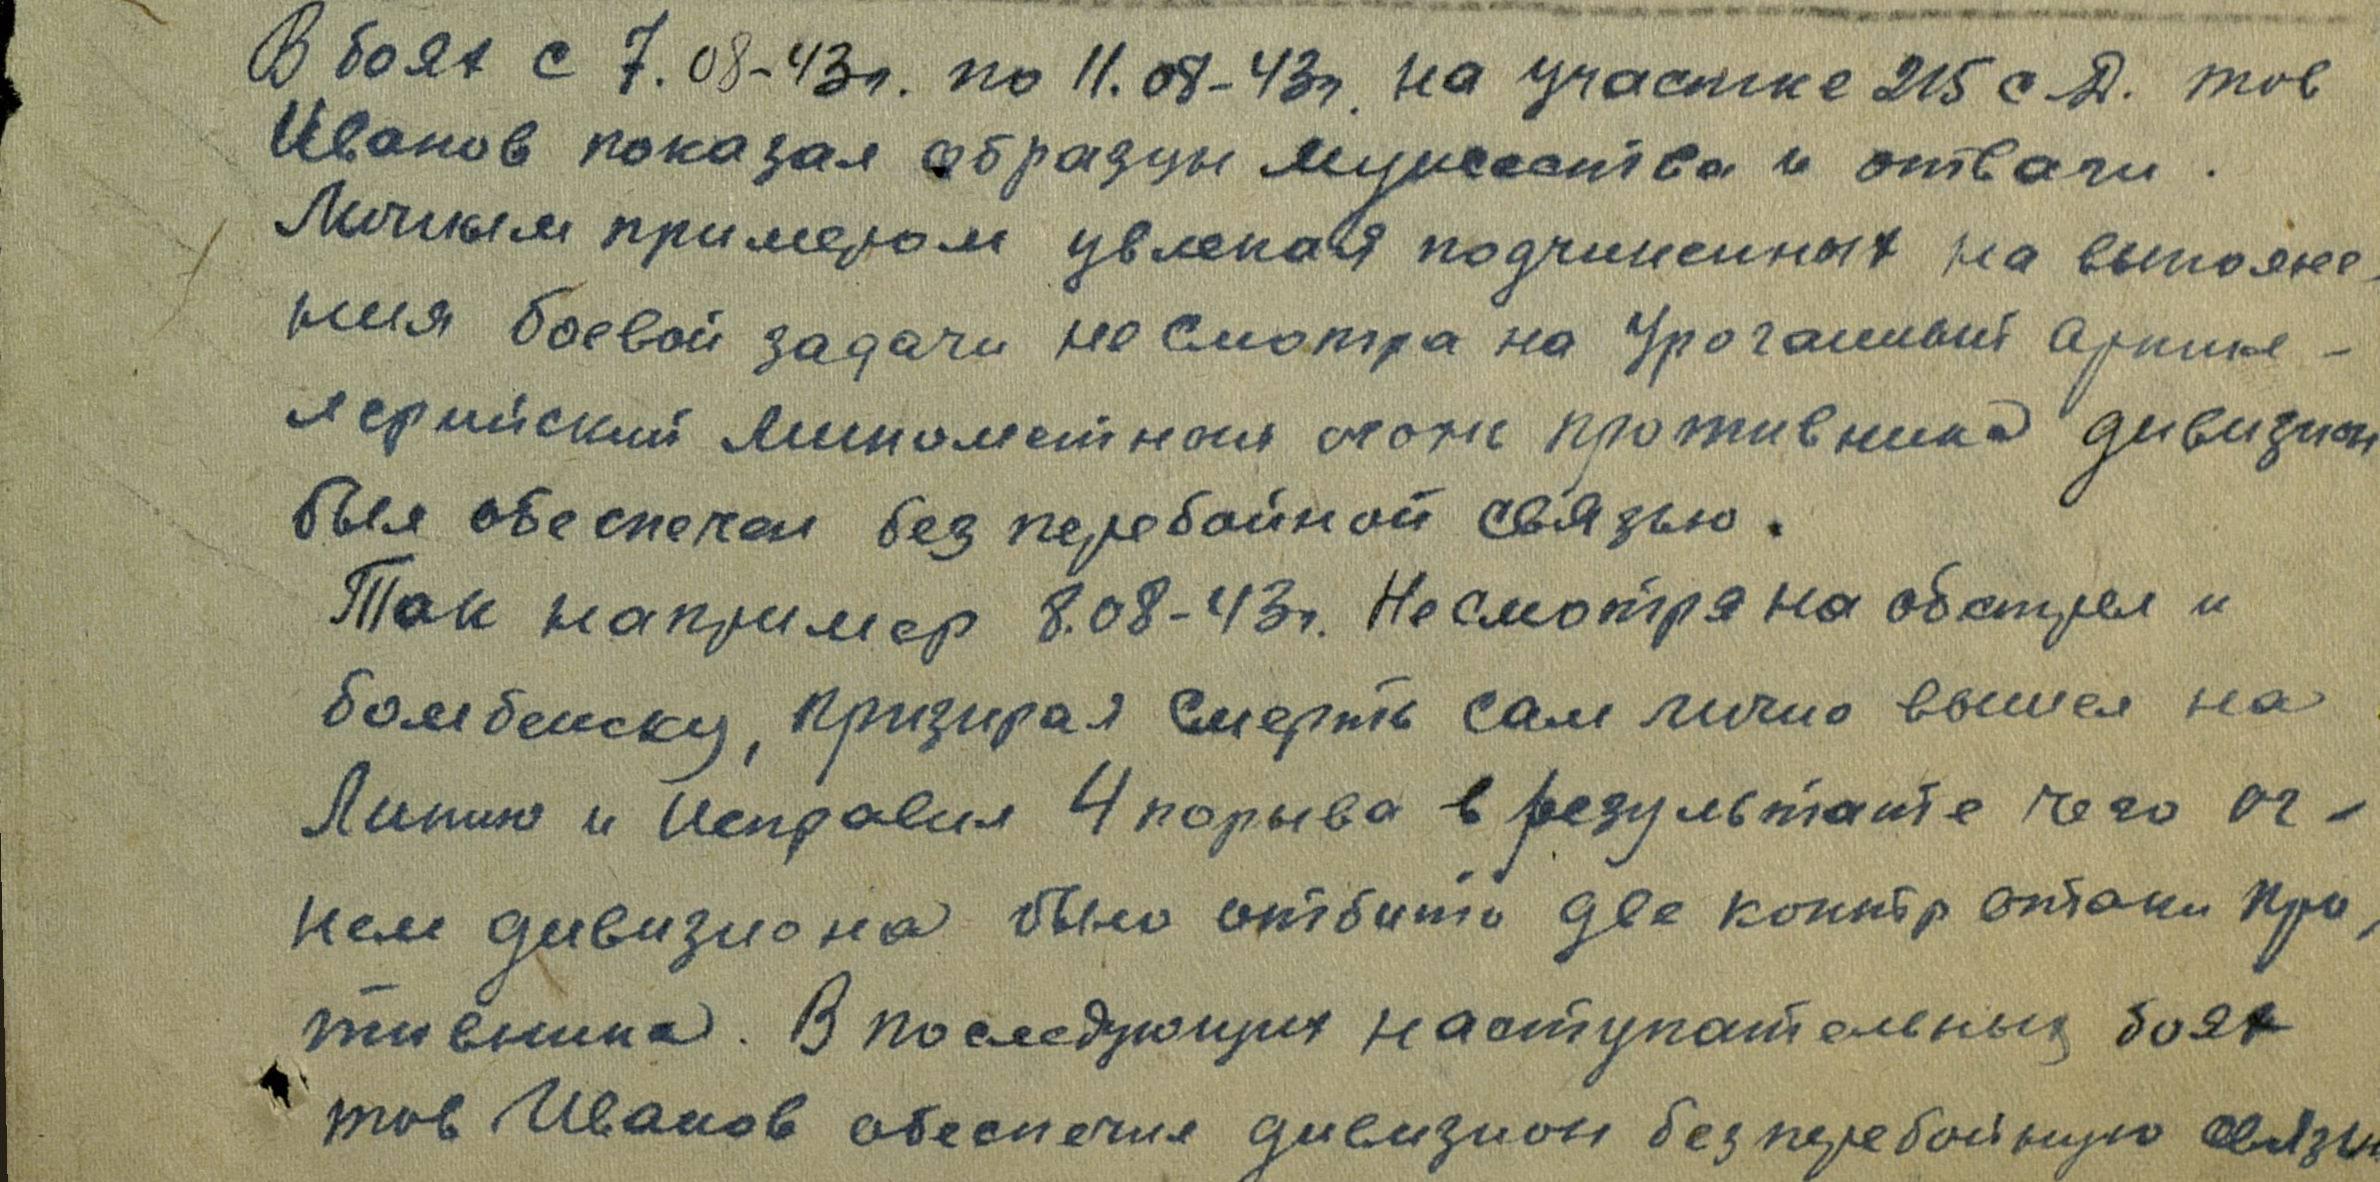 В боях с 7.08-43г. по 11.08-43г. на участке 215 с.д. тов
Иванов показал образцы мужества и отваги.
Личным примером увлекая подчиненных на выполне
ния боевой задачи не смотра на уроганный артил-
лерийский минометной огонь противника дивизион
был обеспечен без перебойной связью.
Так например 8.08-43г. Несмотря на обстрел и
бомбежку, призирая смерть сам лично вышел на
линию и исправил 4 порыва в результате чего ог-
нем дивизиона было отбито две контр атаки про-
тивника. В последующих наступательных боях
тов Иванов обеспечил дивизион без перебойную связь